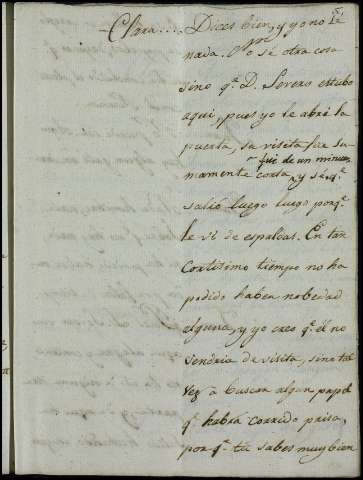 Clara.... Dices bien, y yo no se
nada. No sé otra cosa
sino q.e D. Severo estubo
aqui, pues yo le abrí la
puerta, su visita fue su-
fué de un minuto,
namente corta, y se q.e
salió luego luego porq.e
le vi de espaldas. En tan
cortisimo tiempo no ha
podido haber nobedad
alguna, y yo creo q.e él no
vendria de visita, sino tal
vez à buscar algun papel
q.e habrá corrido prisa,
porq.e tú sabes muy bien